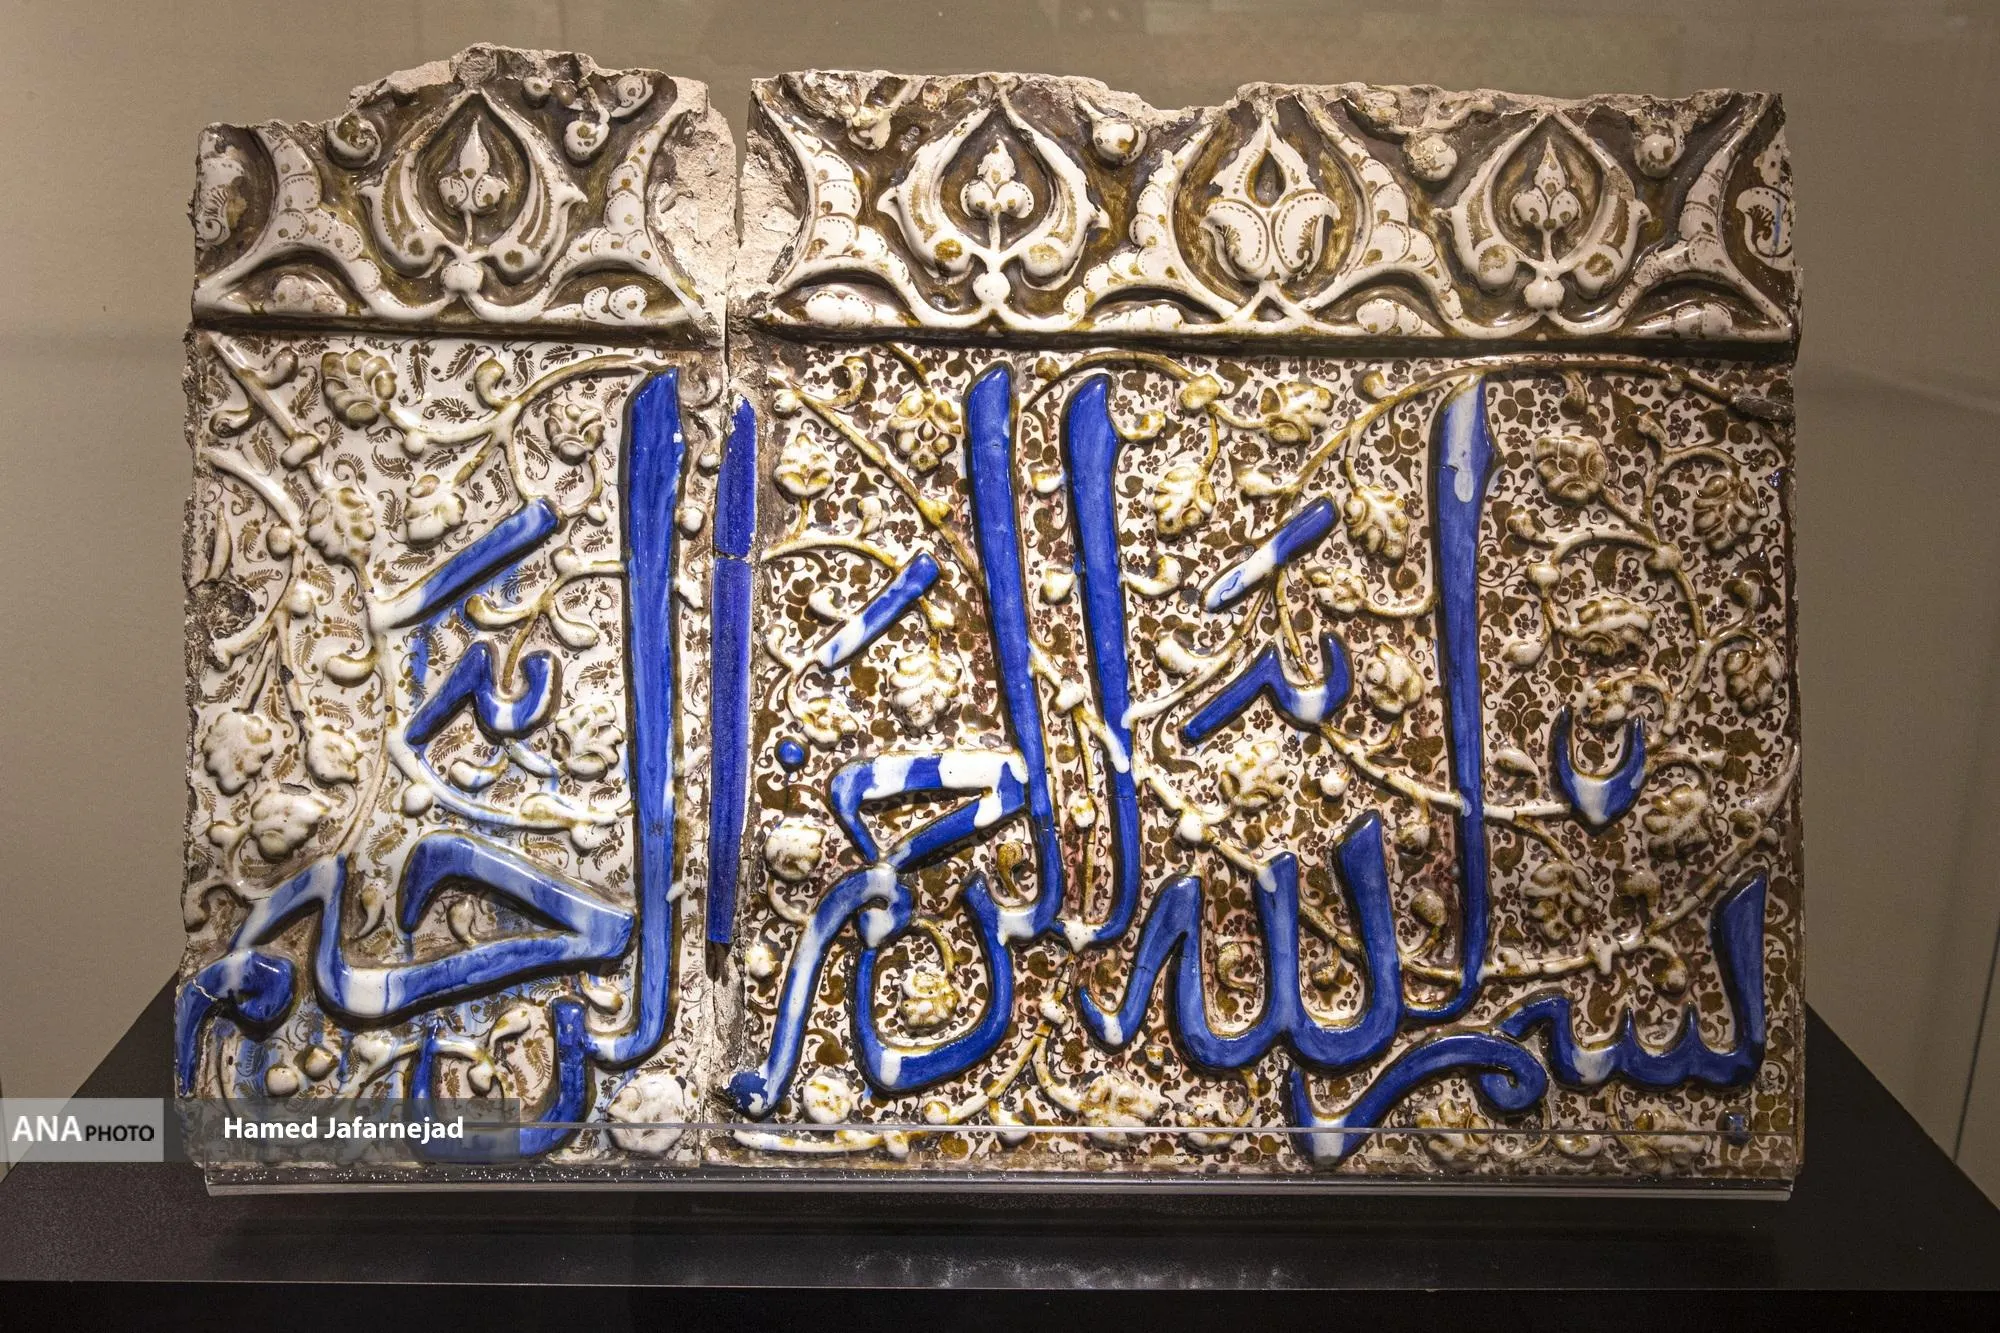 بسم الله الرحمن الرحيم
ANA PHOTO
Hamed Jafarnejad